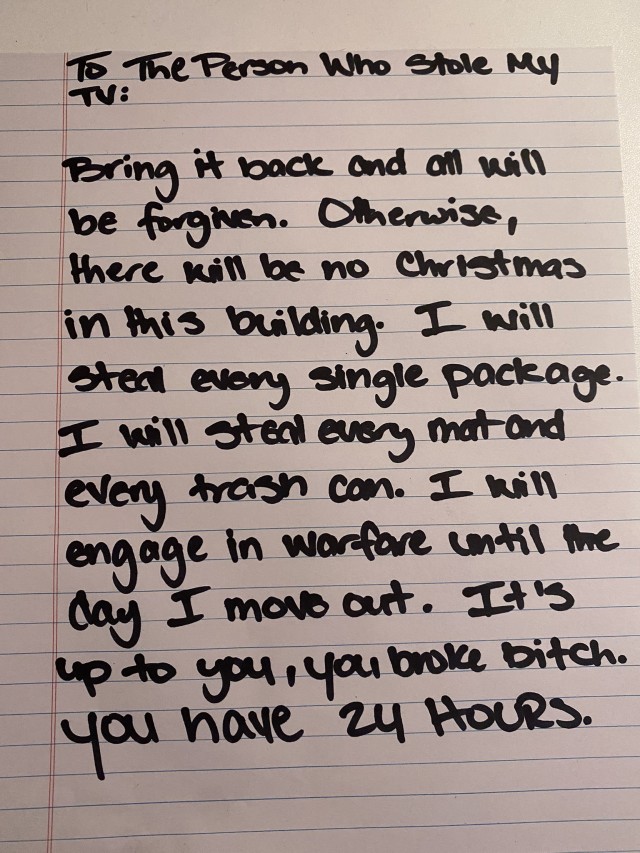 To The Person Who Stole My
TV:
Bring it back and all will
be forgiven. Otherwise,
there will be no Christmas
in this building. I will
steal every single package.
I will steal every mat and
every trash can. I will
engage in warfare until the
day I move out. It's
up to you, you broke bitch.
You have 24 HOURS.